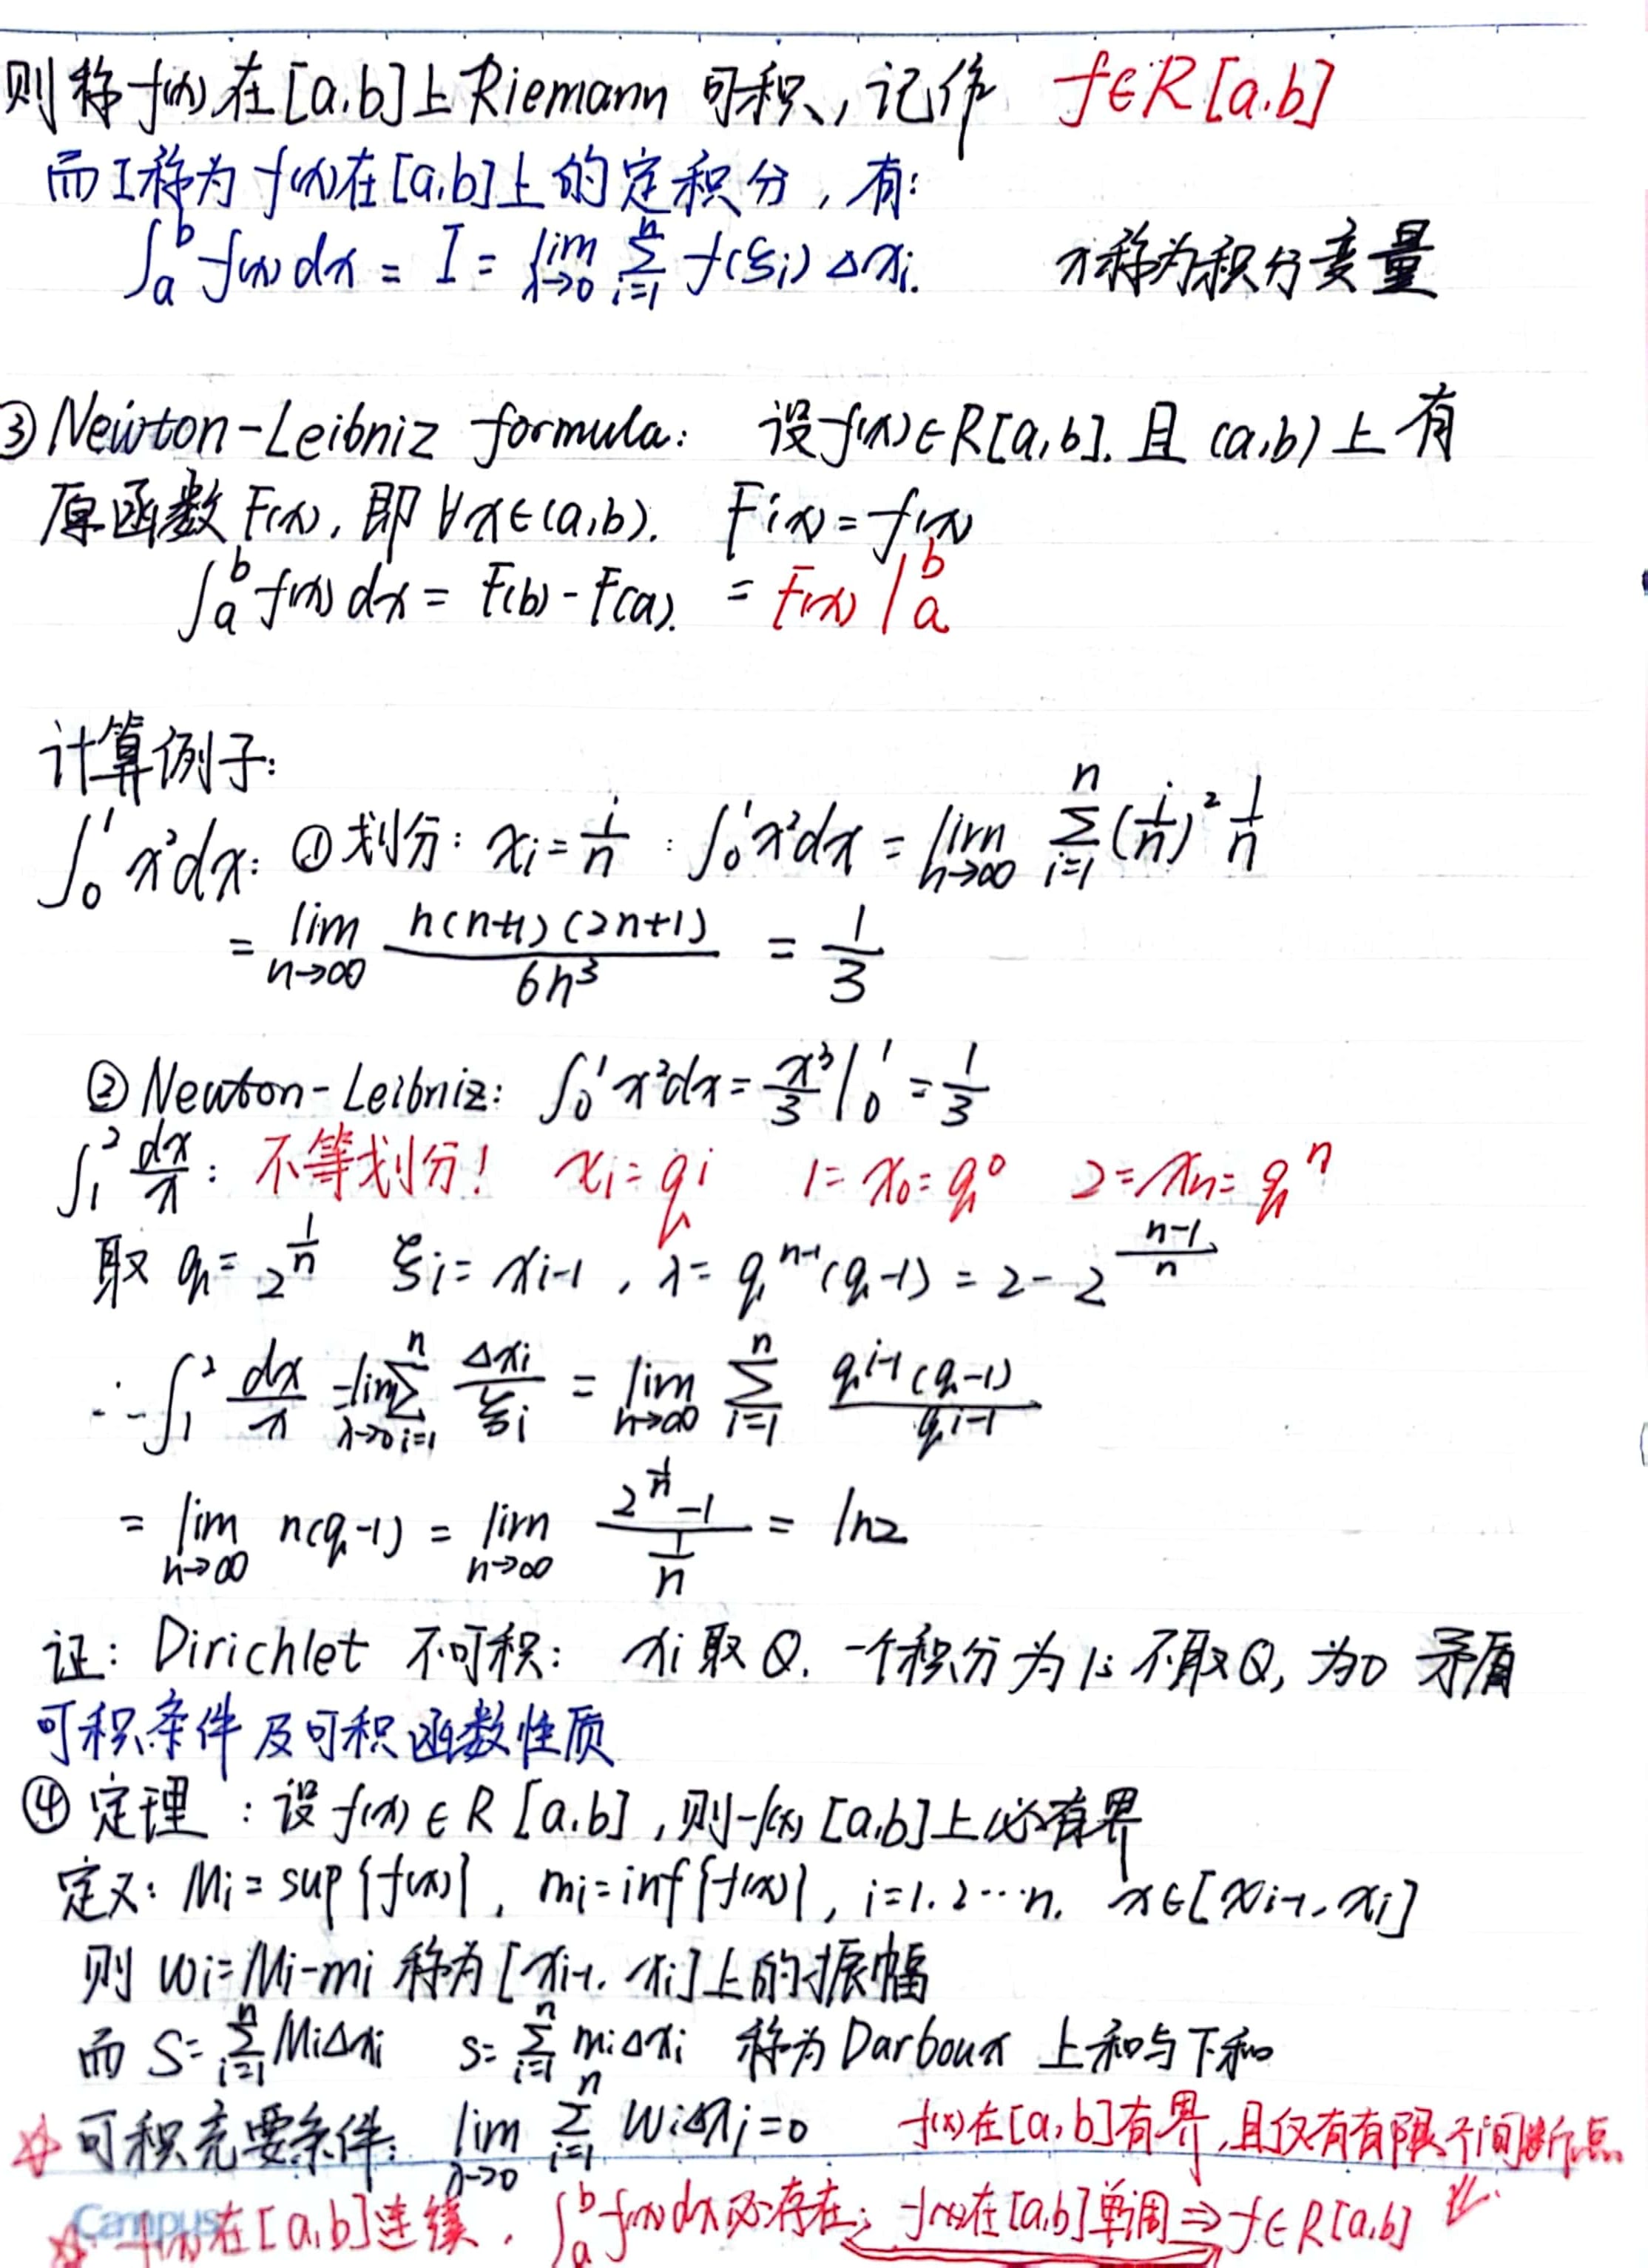 则称f(x)在[a,b]上Riemann可积,记作 f∈R[a,b]
而I称为f(x)在[a,b]上的定积分,有:
∫_a^b f(x)dx = I = lim_{λ→0} Σ_{i=1}^n f(ξi)Δxi. x称为积分变量
③Newton-Leibniz formula: 设f(x)∈R[a,b].且(a,b)上有
原函数F(x),即∀x∈(a,b). F'(x)=f(x)
∫_a^b f(x)dx = F(b)-F(a). = F(x)|_a^b
计算例子:
∫_0^1 x²dx: ①划分: xi=i/n : ∫_0^1 x²dx = lim_{n→∞} Σ_{i=1}^n (i/n)² 1/n
= lim_{n→∞} n(n+1)(2n+1)/6n³ = 1/3
②Newton-Leibniz: ∫_0^1 x²dx = x³/3|_0^1 = 1/3
∫_1^2 dx/x : 不等划分! xi=q^i 1=x0=q^0 2=xn=q^n
取 q=2^{1/n} ξi=xi-1, λ=q^{n-1}(q-1)=2-2^{(n-1)/n}
∴∫_1^2 dx/x = lim_{λ→0} Σ_{i=1}^n Δxi/ξi = lim_{n→∞} Σ_{i=1}^n q^{i-1}(q-1)/q^{i-1}
= lim_{n→∞} n(q-1) = lim_{n→∞} (2^{1/n}-1)/(1/n) = ln2
证: Dirichlet 不可积: xi取Q.一个积分为1; 不取Q,为0 矛盾
可积条件及可积函数性质
④定理:设f(x)∈R[a,b],则f(x)[a,b]上必有界
定义: Mi=sup{f(x)}, mi=inf{f(x)}, i=1.2…n. x∈[xi-1,xi]
则 wi=Mi-mi 称为[xi-1,xi]上的振幅
而 S=Σ_{i=1}^n MiΔxi s=Σ_{i=1}^n miΔxi 称为Darboux上和与下和
☆可积充要条件: lim_{λ→0} Σ_{i=1}^n wiΔxi=0 f(x)在[a,b]有界,且仅有有限个间断点
Campus
☆f(x)在[a,b]连续, ∫_a^b f(x)dx必存在; f(x)在[a,b]单调⇒f∈R[a,b]